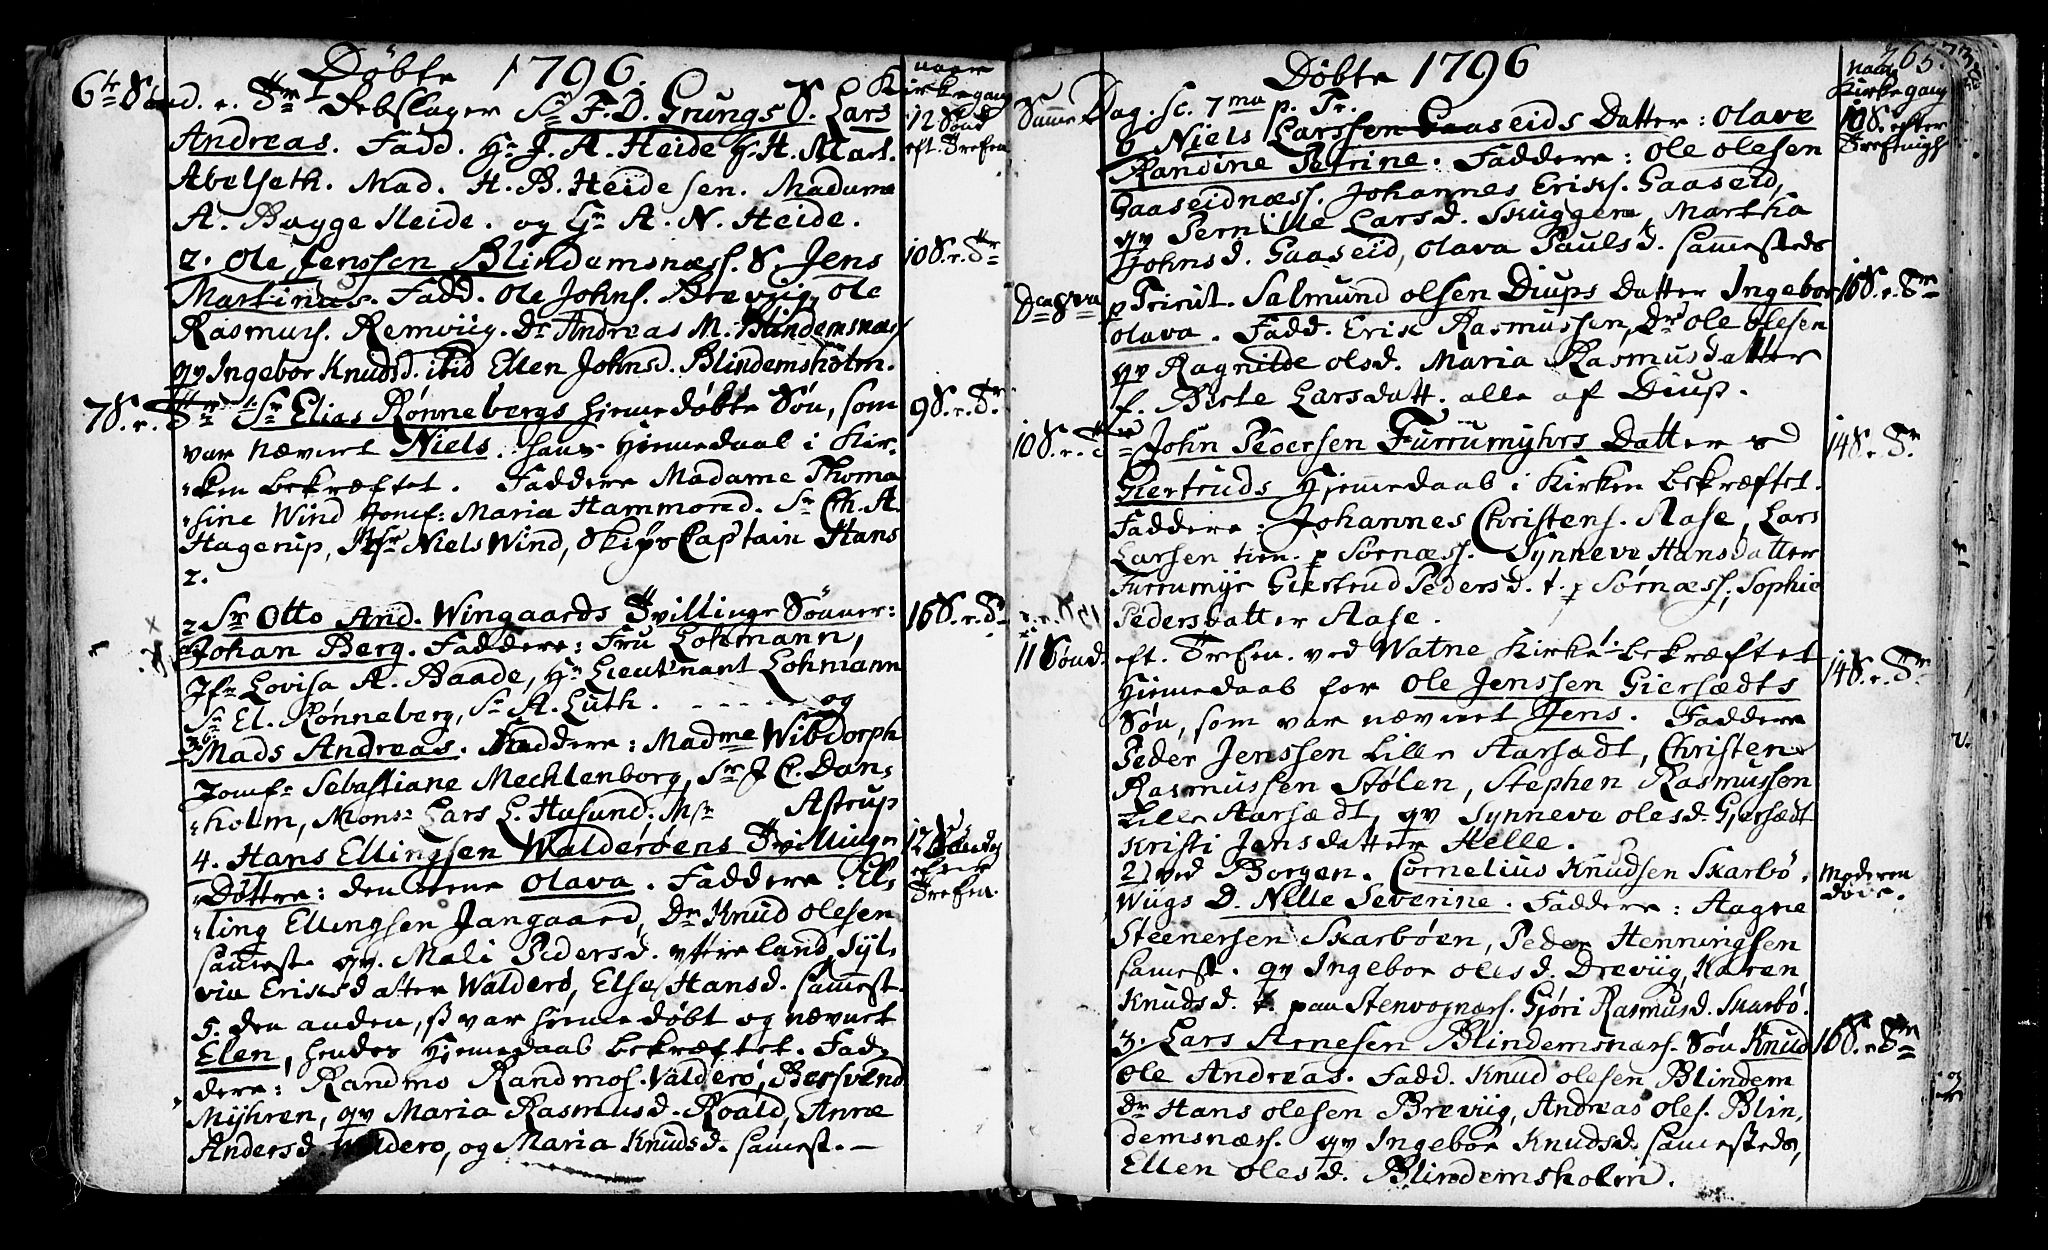 Döbte 1796.
naar
Kirkegang
6te Sönd. e. Tr. 1 Rebslager Sr F. D. Grungs S. Lars
12 Sönd
Andreas. Fadd. Hr J. A. Heide Hr H. Mart.
eft. Trefen
Abelseth. Mad. H. B. Heide sen. Madame
A. Bugge Heide. og Hr A. N. Heide.
2. Ole Jenssen Blindemsnæss. S. Jens
10 S. e. Tr
Martinus. Fadd. Ole Johns. Brevig, Ole
Rasmuss. Remvüg. Dr Andreas M. Blindemsnæs
qv Ingebor Knudsd. ibid Ellen Johnsd. Blindemsholm.
7 S. e. Tr 1. Sr Elias Rønnebergs hjemedøbte Søn, som
9 S. e. Tr
var nævnet Niels. hans Hjemedaab i Kir-
ken bekræftet. Faddere Madame Thoma
sine Wind Jomf: Maria Hammored. Sr Ch. A.
Hagerup, Msr Niels Wind, Skips Captain Hans
2.
2 Sr Otto And. Wingaards Tvillinge Sönner:
16 S. e. Tr
Johan Berg. Faddere: Fru Lohmann,
Jfr Lovisa A. Baade, Hr Lieutnant Lohmann
Sr El. Rønneberg, Sr A. Luth. - - - - og
3. Mads Andreas. Faddere: Madme Wibdorph
Jomfr Sebastiane Mechlenborg, Sr J C. Dan-
holm, Monsr Lars L. Husund, Msr Astrup
4. Hans Ellingsen Walderøens Tvillinge
12 Söndag
Döttre: den eene Olava. Faddere: El-
efter
Trefen.
ling Ellingsen Jangaard, Dr Knud Olesen
samest. qv. Mali Pedersd. yttreland, Syl-
via Eriksdatter Walderø, Else Hansd. samest.
5. den anden, so var hjemedøbt og nævnet
Elen, hendes Hjemedaab bekræftet. Fad-
dere: Randmo Randmos. Valderö, Bersvend
Myhren, qv Maria Rasmusd. Roald, Anne
Andersd Walderø, og Maria Knudsd. samest. -
Döbte 1796
265.
naar
Kirkegang
Samme Dag. sc. 7ma p. Tr.
6 Niels Larssen Gaaseids Datter: Olave
10 S. efter
Trefenigh
Randine Petrine. Faddere: Ole Olesen
Gaaseidnæss. Johannes Eriks. Gaaseid,
qv Pernille Larsd. Skuggen, Martha
Johnsd. Gaaseid, Olava Paulsd. sammesteds
Dca 8va p Trinit. Salmund Olsen Diups Datter Ingebor
16 S. e. Tr
Olava. Fadd. Erik Rasmussen, Dr Ole Olesen
qv Ragnilde Olsd. Maria Rasmusdatter
f. Birte Larsdatt. alle af Diup.
10 S. e. Tr John Pedersen Furrumyhrs Datter
14 S. e. Tr.
Giertruds Hjemedaab i Kirken bekræftet.
Faddere: Johannes Christens. Aase, Lars
Larsen tien. p Sørnæss. Synneve Hansdatter
Furrumyr Giertrud Pedersd. t. p Sørnæss, Sophie
Pedersdatter Aase.
11 Sönd. eft. Trefen. ved Watne Kirke 1. bekræftet
14 S. e. Tr
Hjemedaab for Ole Jenssen Giersædts
Søn, som var nævnet Jens. Faddere
Peder Jenssen Lille Aarsædt, Christen
Rasmussen Stølen, Stephen Rasmussen
Lille Aarsædt, qv Synneve Olesd. Gjersædt
Kristi Jensdatter Helle.
2) ved Borgen. Cornelius Knudsen Skarbö-
Moderen
døde.
wiigs D. Nelle Severine. Faddere: Aagne
Steenersen Skarbøen, Peder Henningsen
samest. qv Ingebor Olesd. Drevüg, Karen
Knudsd. t. paa Stenvognæss. Gjøri Rasmusd. Skarbö.
3. Lars Arnesen Blindemsnæss. Søn Knud
16 S. e. Tr
Ole Andreas. Fadd. Knud Olesen Blindem
Dr Hans Olesen Brevüg, Andreas Oles. Blin-
demsnæss. qv Ingebor Knudsd. samesteds,
Ellen Olesd. Blindemsholm.